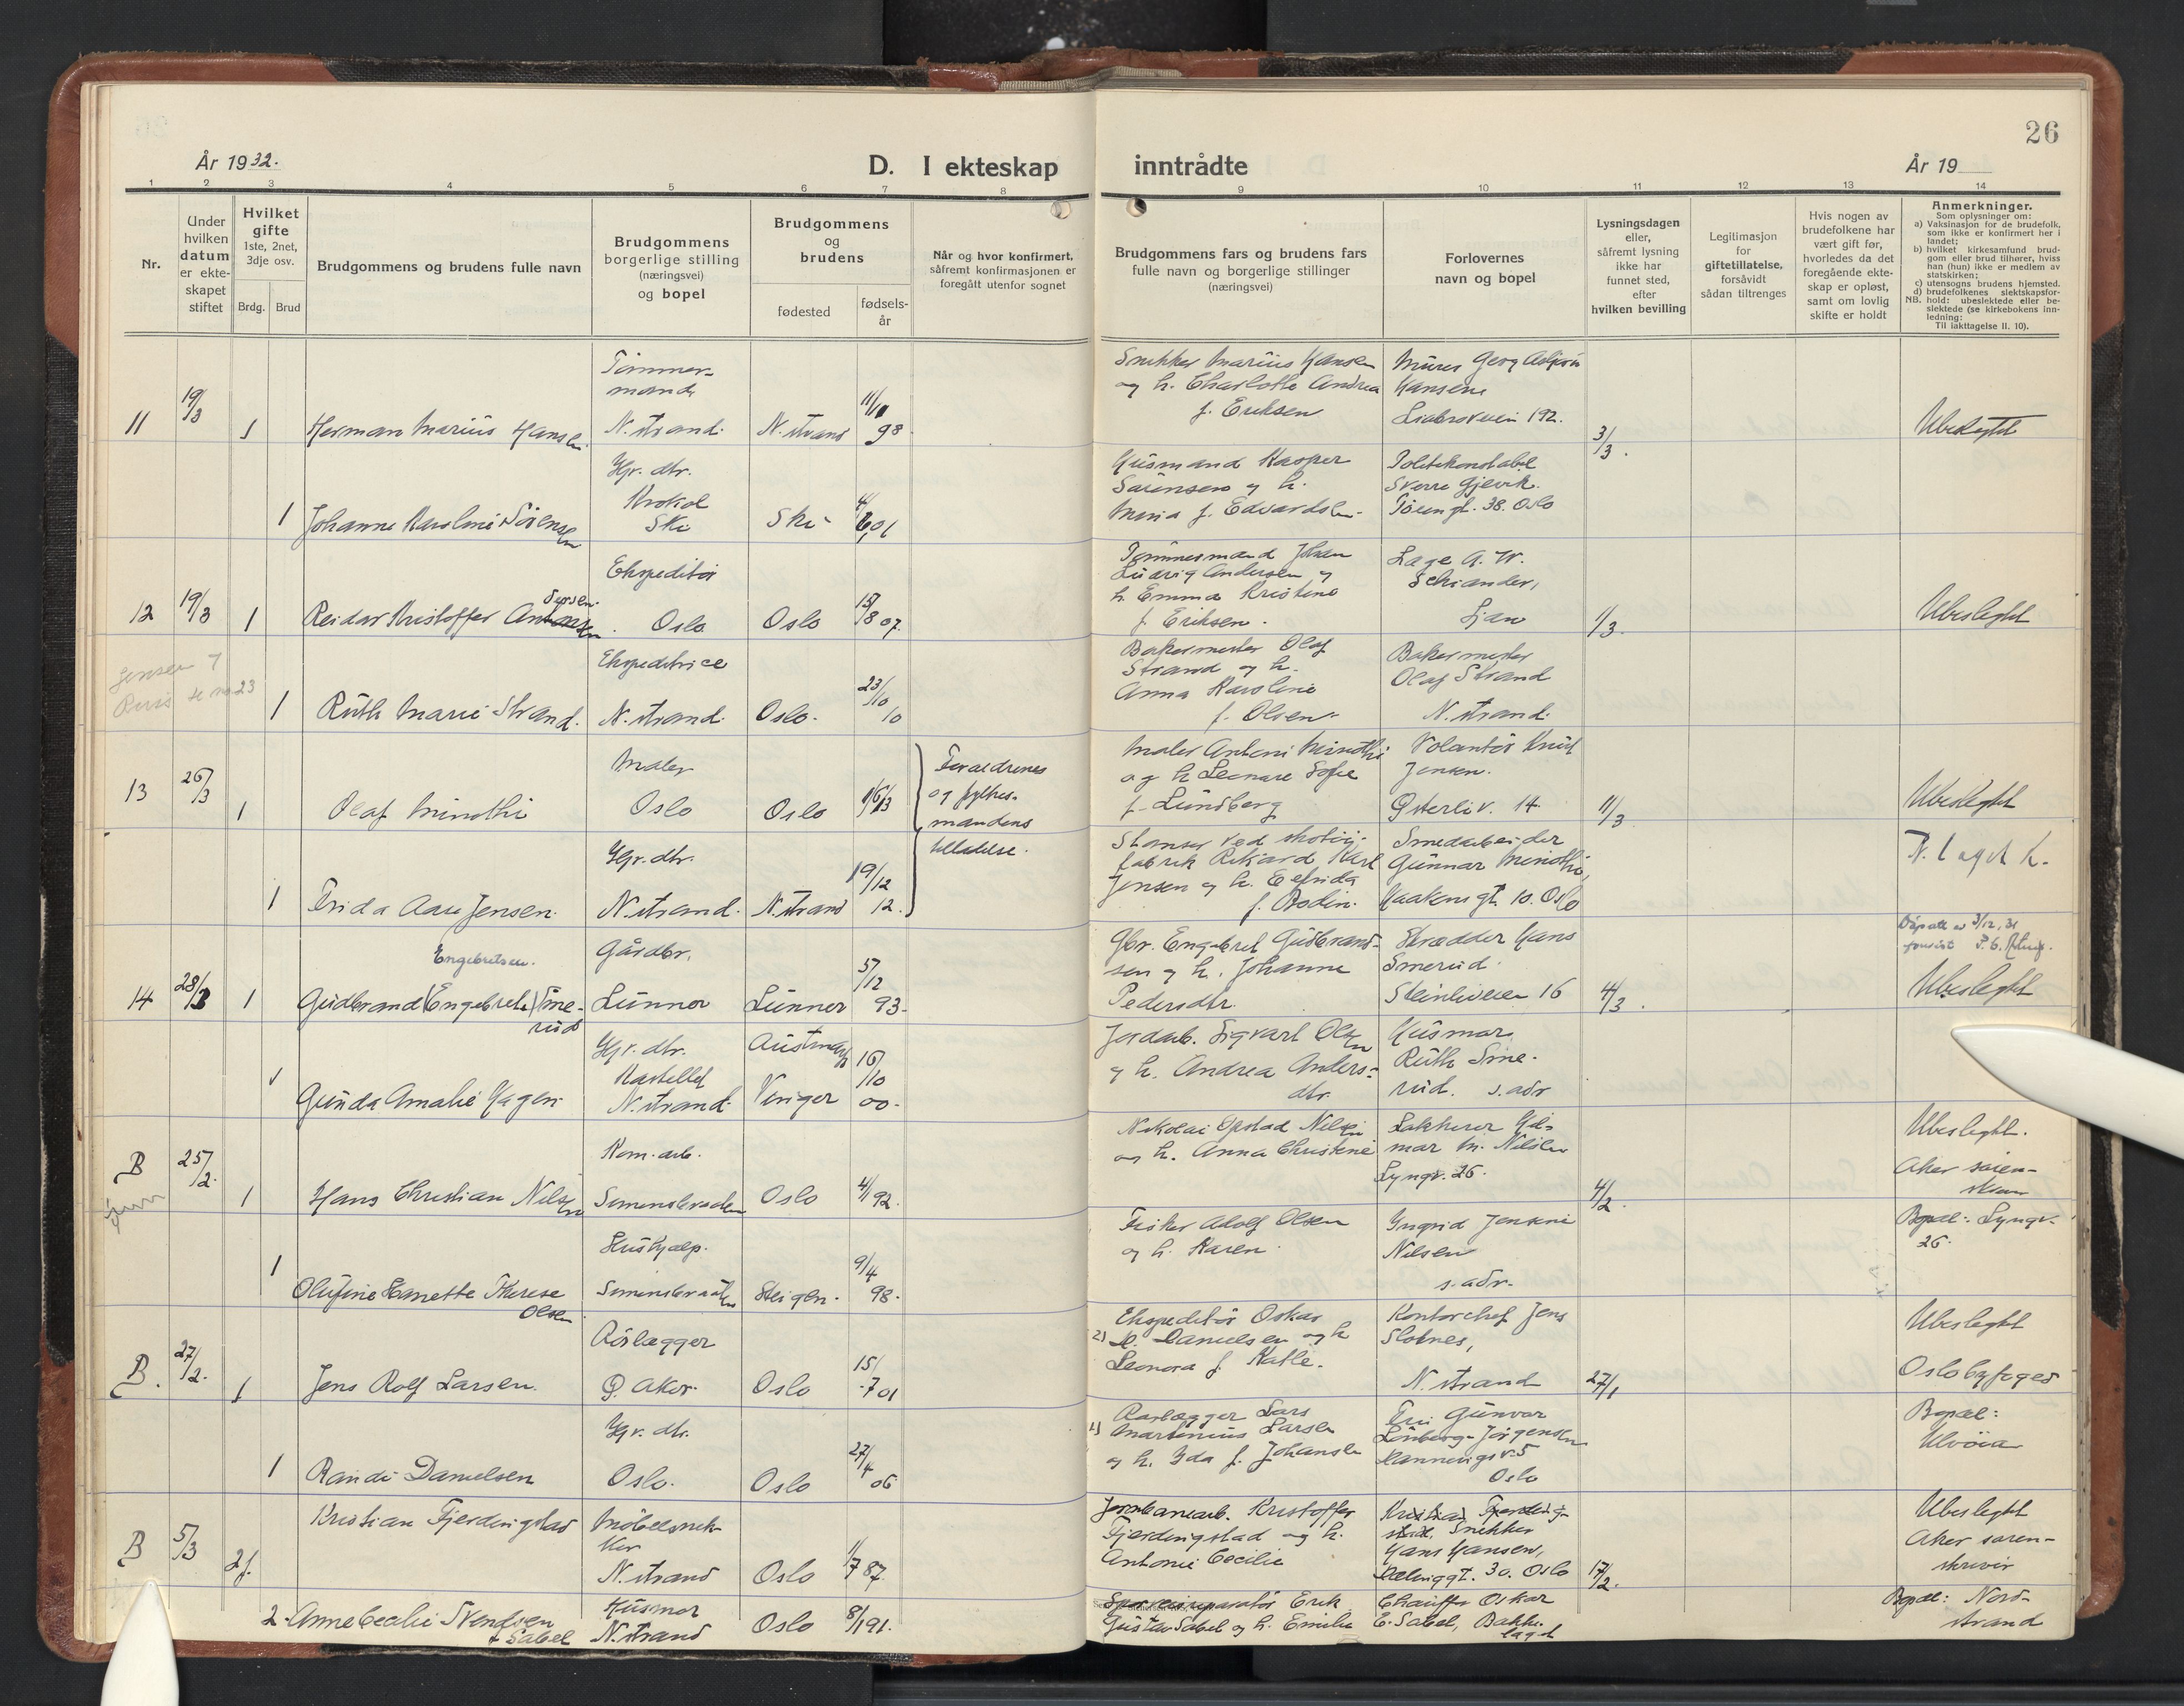 26
År 1932.
D. I ekteskap inntrådte
År 19
1 2 3 4 5 6 7 8 9 10 11 12 13 14
Nr.
Under hvilken datum er ekteskapet stiftet
Hvilket gifte
1ste, 2net, 3dje osv.
Brdg. Brud
Brudgommens og brudens fulle navn
Brudgommens borgerlige stilling (næringsvei) og bopel
Brudgommens og brudens
fødested
fødsels-år
Når og hvor konfirmert, såfremt konfirmasjonen er foregått utenfor sognet
Brudgommens fars og brudens fars fulle navn og borgerlige stillinger (næringsvei)
Forlovernes navn og bopel
Lysningsdagen eller, såfremt lysning ikke har funnet sted, efter hvilken bevilling
Legitimasjon for giftetillatelse, forsåvidt sådan tiltrenges
Hvis nogen av brudefolkene har vært gift før, hvorledes da det foregående ekteskap er opløst, samt om lovlig skifte er holdt
Anmerkninger.
Som oplysninger om:
a) Vaksinasjon for de brudefolk, som ikke er konfirmert her i landet;
b) hvilket kirkesamfund brudgom eller brud tilhører, hviss han (hun) ikke er medlem av statskirken;
c) utensogns brudens hjemsted.
d) brudefolkenes slektskapsfor-
NB. hold: ubeslektede eller beslektede (se kirkebokens innledning:
Til iakttagelse II. 10).
11 19/3 1 Herman Marius Hansen
Tømmermand
N. strand. N. strand 98
Snekker Marius Hansen
og h. Charlotte Andrea
f. Eriksen
Murer Georg
Hansen
192.
3/3.
Ubeslegtet
1 Johanne Karoline Sørensen
Hgr. dtr.
Ski
Ski 01
Husmand Kasper
Sørensen og h.
Maria f. Edvardsen
Politikonstabel
Sverre Gjevik.
38. Oslo
12 19/3 1 Reidar Kristoffer Andersen
Ekspeditør
Oslo Oslo 15/8 07.
Tømmermand Johan
Ludvig Andersen og
h. Emma Kristine
f. Eriksen.
Lage A. W.
Schiander,
Ljan
1/3.
Ubeslegtet
Jensen
23
1 Ruth Marie Strand.
Ekspeditrice
N. strand. Oslo. 23/10 10
Bakermester Olaf
Strand og h.
Anna Karoline
f. Olsen
Bakermester
Olaf Strand
N. strand.
13 26/3 1 Olaf Minothi
Maler
Oslo Oslo
Foraeldrenes
og fylkes-
mandens
tillatelse.
Maler Antoni Minothi
og h. Leonare Sofie
f. Lundberg
Volontør Knut
Jensen.
Østerliv. 14
11/3
Ubeslegtet
1 Frida Aase Jensen.
Hgr. dtr.
N. strand. N. strand 19/12 12.
Stanser ved skotøi-
fabrik Rikard Karl
Jensen og h. Elfrida
f. Bodin.
Smedarbeider
Gunnar Minothi,
Haakons gt. 10. Oslo
14 28/3 1 Gudbrand (Engebret) Smerud
Engebretsen.
Gårdbr.
Lunner Lunner 5/12 93.
Gbr. Engebret Gudbrand-
sen og h. Johanne
Pedersdtr.
Skrædder Hans
Smerud.
Steinliveien 16
4/3.
Ubeslegtet
1 Gunda Amalie Hagen
Hgr. dtr.
Kastellet
N. strand.
Vinger 16/10 00.
Jordarb. Sigvart Olsen
og h. Andrea Anders-
dtr.
Husmor
Ruth Sme-
rud. s. adr
B 25/2. 1 Hans Christian Nilsen
Kom. arb.
Simensbraaten Oslo 4/1 92.
Nikolai Opstad Nilsen
og h. Anna Christine
Lakkerer Hil-
mar M. Nilsen
Lyngv. 26.
4/2.
Ubeslegtet.
Aker soren-
skr
Bopæl: Lyngv.
26.
1 Olufine Hanette Therese
Olsen
Hushjælp.
Simensbraaten Steigen. 9/4 98.
Fisker Adolf Olsen
og h. Karen.
Yngrid Jensine
Nilsen
s. adr.
B. 27/2. 1 Jens Rolf Larsen.
Rørlægger
Ø. Aker. Oslo 15/7 01
2) Ekspeditør Oskar
Danielsen og h
Leonora f.
Kontorchef Jens
Slotnes,
N. strand
27/1
Ubeslegtet
Oslo byfoged
1 Randi Danielsen
Hgr. dtr.
Oslo. Oslo 27/4 06
1) Rørlægger Lars
Martinius Larsen
og h. Ida f. Johansen
Fru Gunvor
Lønberg-Jørgensen
Oslo
Bopæl:
Ulvøia
B 5/3 2f. Kristian Fjerdingstad
Møbelsnek-
ker
N. strand Oslo 1/7 87.
Jernbanearb. Kristoffer
Fjerdingstad og h.
Antonie Cecilie
Kristian Fjerding-
stad, Snekker
Hans Hansen,
gt. 30. Oslo
17/2.
Ubeslegtet
Aker soren-
skriver
2. Anne Cecilie Svendsen
f. Sabel
Husmor
N. strand
Oslo 8/1 91.
Erik
Gustav Sabel og h. Emilie
Chauffør Oskar
E. Sabel, Bække-
laget
Bopæl: Nord-
strand